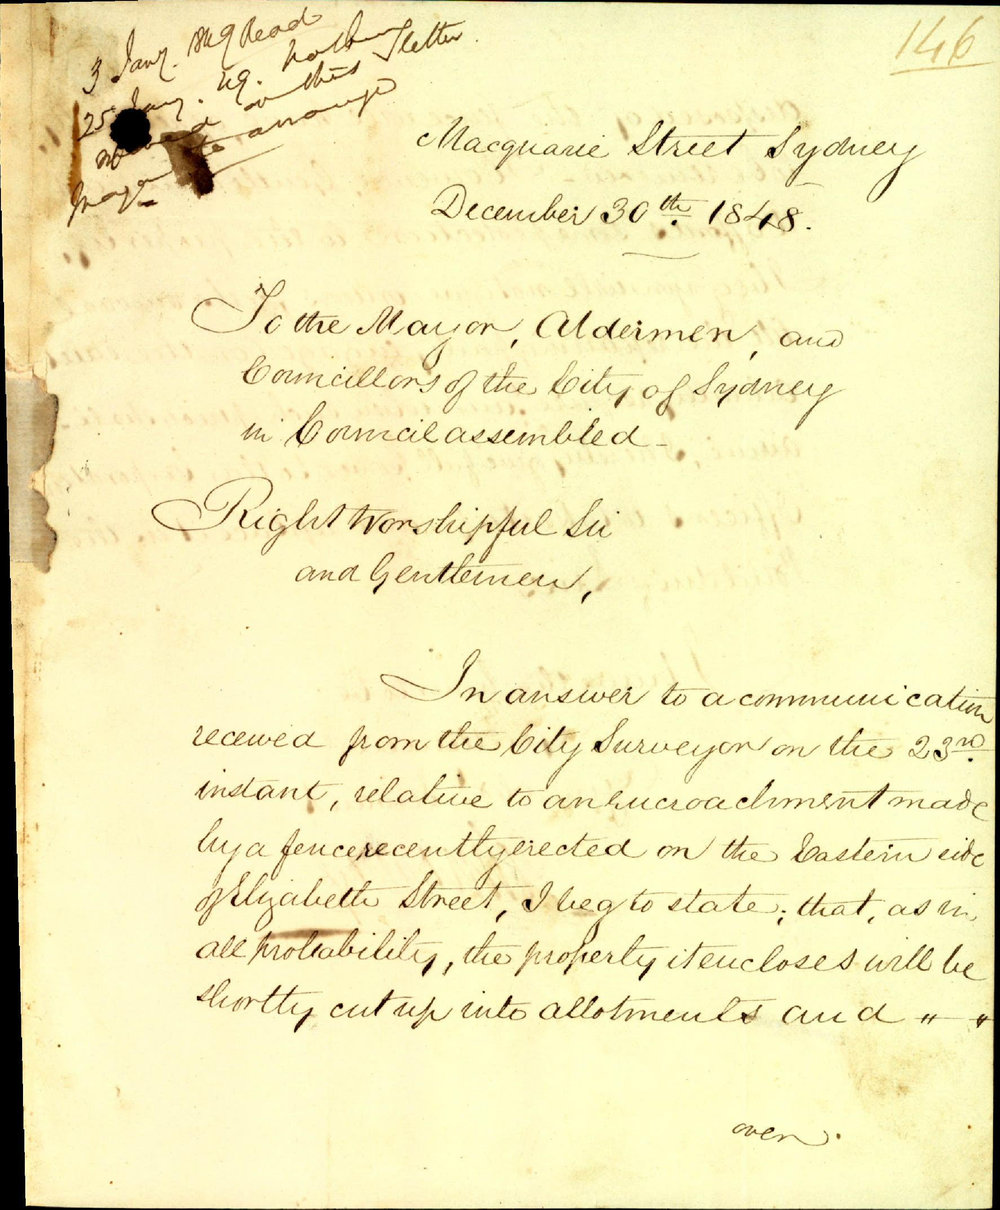 146
3 Jany. 1849 Read
25 Jany. 49. Nothing
on this letter
Mayor to arrange
Macquarie Street Sydney
December 30th. 1848.
To the Mayor, Aldermen, and
Councillors of the City of Sydney
in Council assembled_
Right Worshipful Sir
and Gentlemen,
In answer to a communication
received from the City Surveyor on the 23rd
instant, relative to an encroachment made
by a fence recently erected on the Eastern side
of Elizabeth Street, I beg to state; that, as in
all probability, the property it encloses will be
shortly cut up into allotments and " "
over.